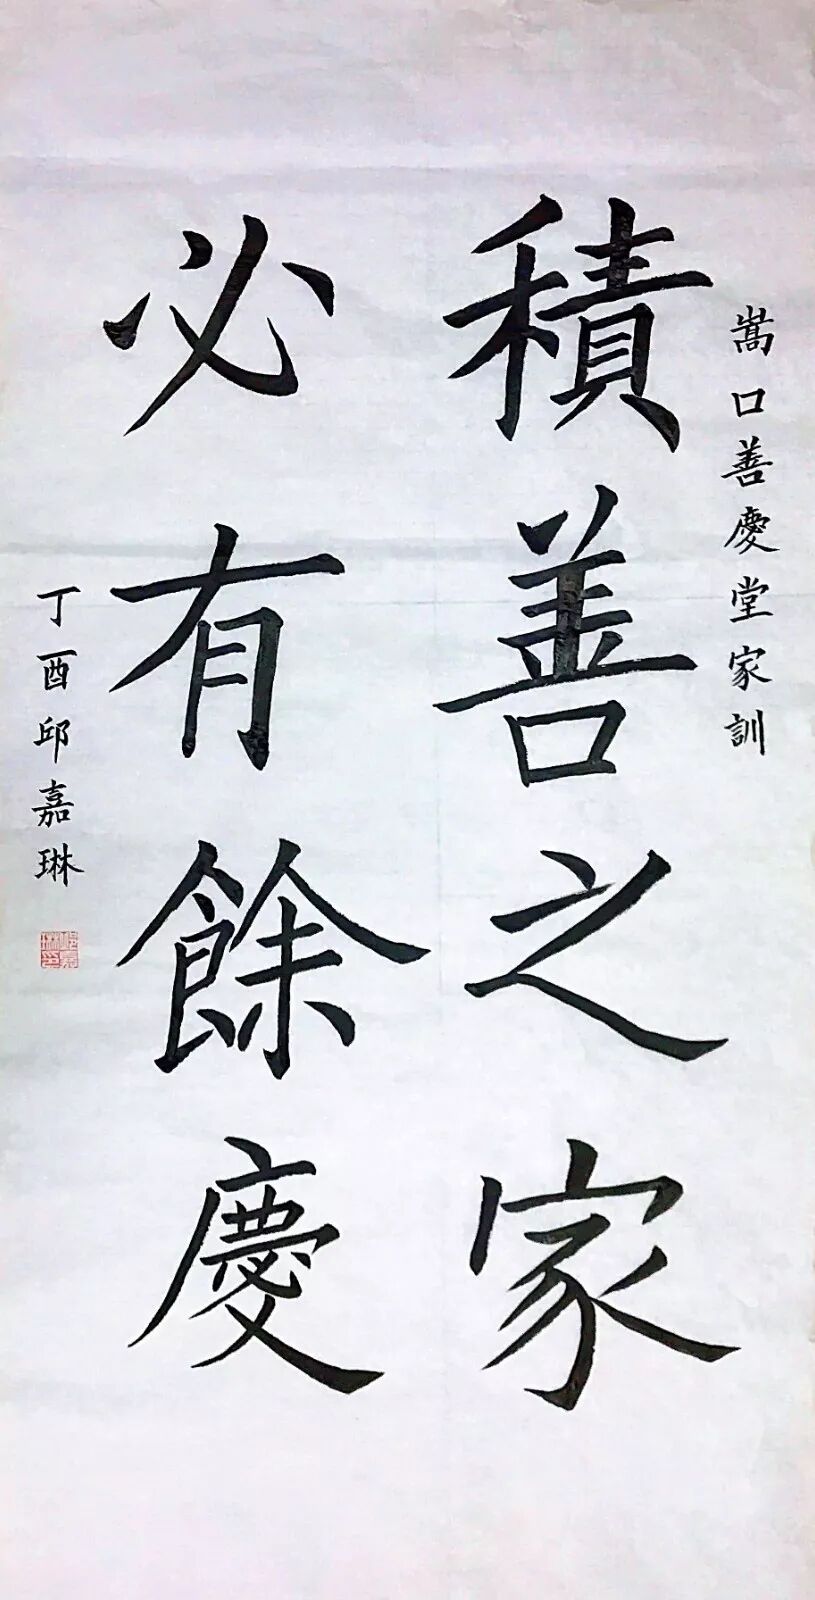 嵩口善慶堂家訓
積善之家
必有餘慶
丁酉邱嘉琳